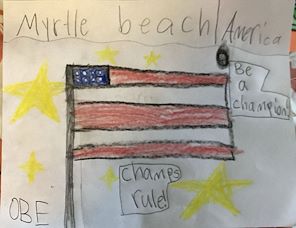 Myrtle beach America
Be
a
champion!
champs
rule!
OBE